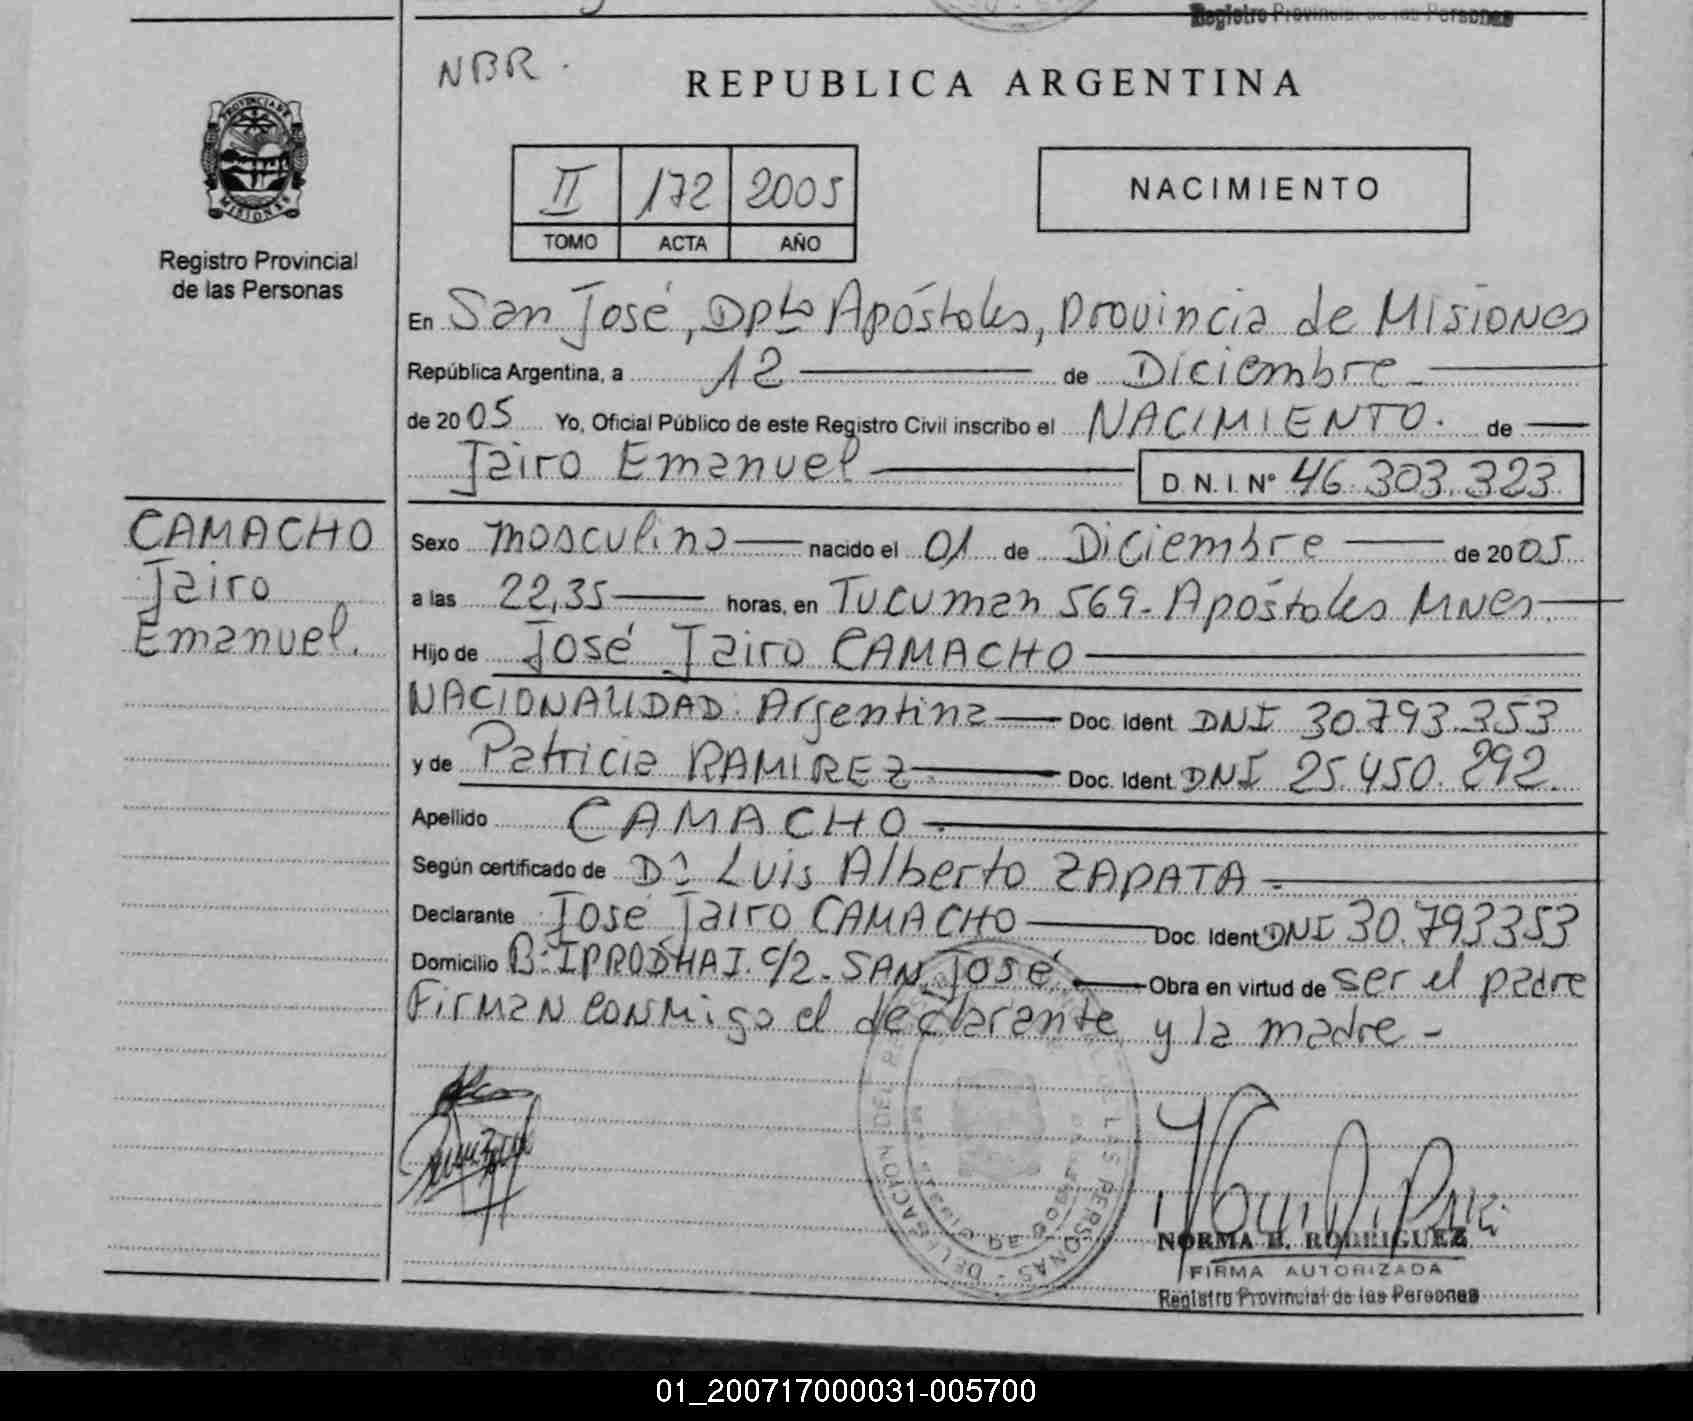 Registro Provincial de las Personas
NBR.
REPUBLICA ARGENTINA
PROVINCIA DE
MISIONES
Registro Provincial
de las Personas
II 172 2005
TOMO ACTA AÑO
NACIMIENTO
En San José, Dpto Apóstoles, Provincia de Misiones
República Argentina, a 12 de Diciembre
de 2005 Yo, Oficial Público de este Registro Civil inscribo el NACIMIENTO. de
Jairo Emanuel D.N.I. Nº 46.303.323
CAMACHO
Jairo
Emanuel.
Sexo masculino nacido el 01 de Diciembre de 2005
a las 22,35 horas, en Tucuman 569- Apóstoles Mnes.
Hijo de José Jairo CAMACHO
NACIONALIDAD: Argentina Doc. Ident. DNI 30.793.353
y de Patricia RAMIREZ. Doc. Ident. DNI 25.450.292.
Apellido CAMACHO-
Según certificado de Dr Luis Alberto ZAPATA-
Declarante José Jairo CAMACHO Doc. Ident DNI 30.793353
Domicilio Bº IPRODHAI. C/2- SAN José. Obra en virtud de ser el padre
Firman conmigo el declarante y la madre-
LAS PERSONAS - DELEGACION DE
NORMA B. RODRIGUEZ
FIRMA AUTORIZADA
Registro Provincial de las Personas
01_200717000031-005700